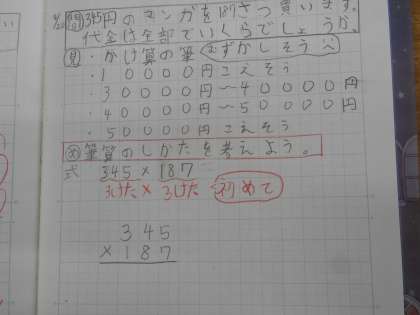 問 345円のマンガを187さつ買います。
代金は全部でいくらでしょうか。
見 ・かけ算の筆 むずかしそう
・10000円こえそう
・30000円〜40000円
・40000〜50000円
・50000円こえそう
め 筆算のしかたを考えよう。
式 345×187
3けた×3けた 初めて
345
×187